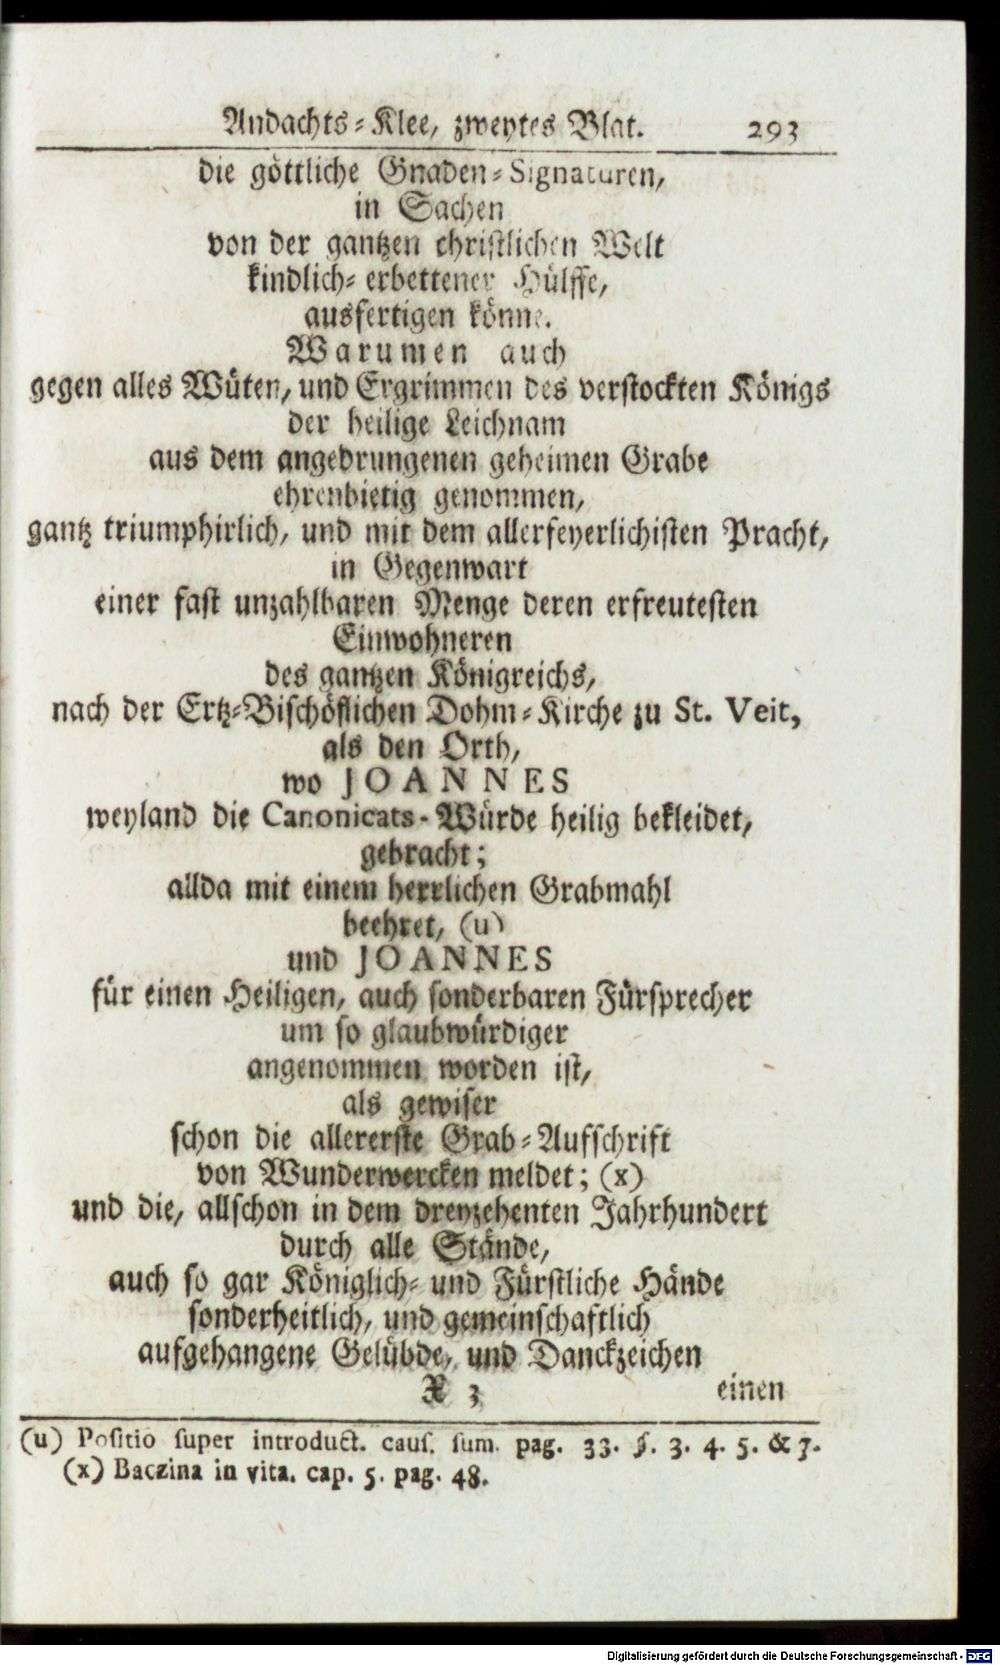 Andachts-Klee, zweytes Blat. 293
die göttliche Gnaden-Signaturen,
in Sachen
von der gantzen christlichen Welt
kindlich-erbettener Hülffe,
ausfertigen könne.
Warumen auch
gegen alles Wüten, und Ergrimmen des verstockten Königs
der heilige Leichnam
aus dem angedrungenen geheimen Grabe
ehrenbietig genommen,
gantz triumphirlich, und mit dem allerfeyerlichisten Pracht,
in Gegenwart
einer fast unzahlbaren Menge deren erfreutesten
Einwohneren
des gantzen Königreichs,
nach der Ertz-Bischöflichen Dohm-Kirche zu St. Veit,
als den Orth,
wo JOANNES
weyland die Canonicats-Würde heilig bekleidet,
gebracht;
allda mit einem herrlichen Grabmahl
beehret, (u)
und JOANNES
für einen Heiligen, auch sonderbaren Fürsprecher
um so glaubwürdiger
angenommen worden ist,
als gewiser
schon die allererste Grab-Aufschrift
von Wunderwercken meldet; (x)
und die, allschon in dem dreyzehenten Jahrhundert
durch alle Stände,
auch so gar Königlich- und Fürstliche Hände
sonderheitlich, und gemeinschaftlich
aufgehangene Gelübde, und Danckzeichen
X 3 einen
(u) Positio super introduct. caus. sum. pag. 33. §. 3. 4. 5. & 7.
(x) Baczina in vita. cap. 5. pag. 48.
Digitalisierung gefördert durch die Deutsche Forschungsgemeinschaft - DFG